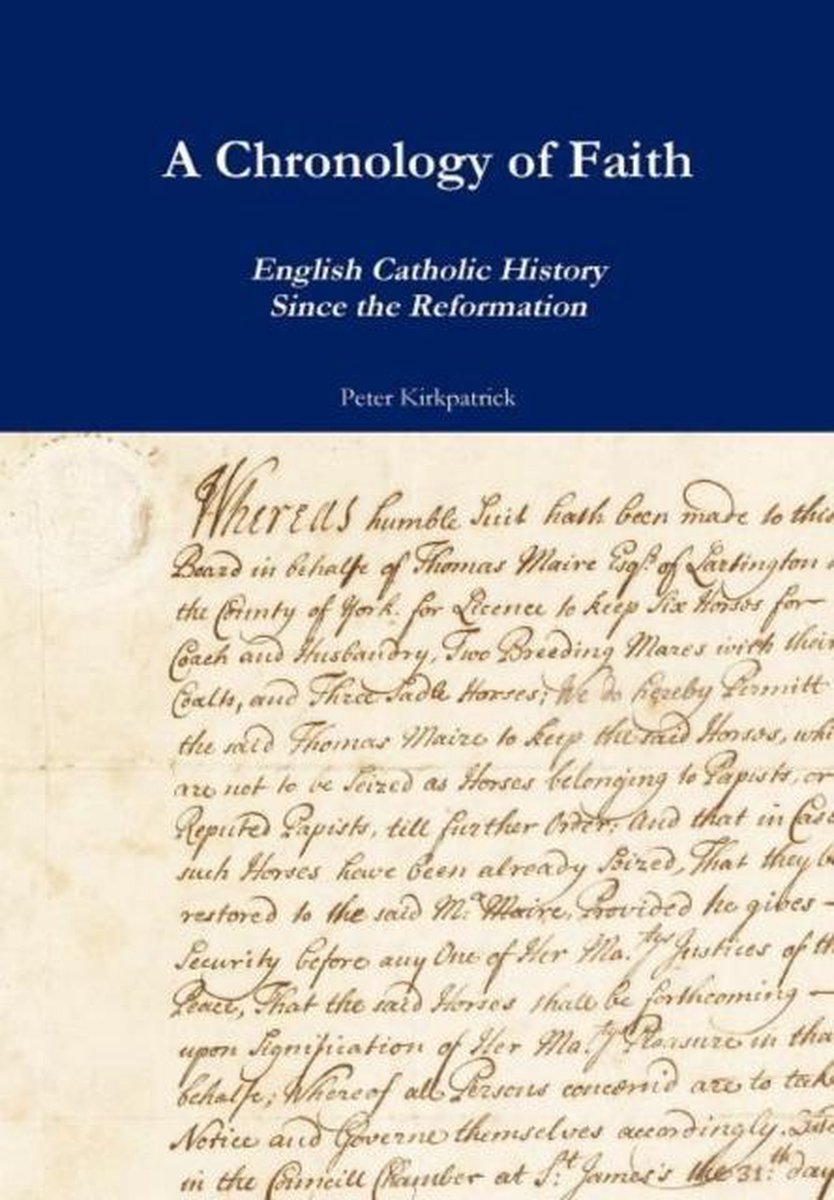 A Chronology of Faith
English Catholic History
Since the Reformation
Peter Kirkpatrick
Whereas humble Suit hath been made to this
Board in behalfe of Thomas Maire Esqr. of Lartington
the County of York. for Licence to keep Six Horses for
Coach and Husbandry, Two Breeding Mares with their
Coalts, and Three Sadle Horses; We do hereby Permitt
the said Thomas Maire to keep the said Horses, whi
are not to be Seized as Horses belonging to Papists, or
Reputed Papists, till further Order; And that in Case
such Horses have been already Seized, That they be
restored to the said Mr. Maire, Provided he gives —
Security before any One of Her Ma.tys Justices of th
Peace, That the said Horses shall be forthcoming —
upon Signification of Her Ma.tys Pleasure in tha
behalfe; Whereof all Persons concern'd are to take
Notice and Governe themselves accordingly.
in the Councill Chamber at St. James's the 31:th day